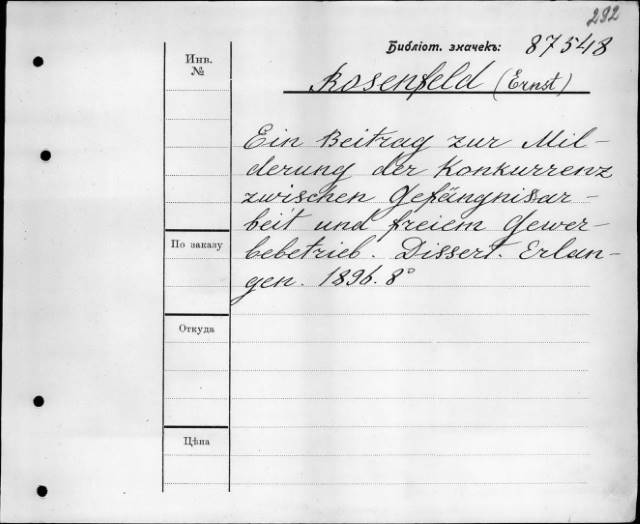 292
Библіот. значекъ: 87548
Инв.
№
Rosenfeld (Ernst)
Ein Beitrag zur Mil-
derung der Konkurrenz
zwischen Gefängnisar-
beit und freiem Gewer-
bebetrieb. Dissert. Erlan-
gen. 1896. 8°
По заказу
Откуда
Цѣна